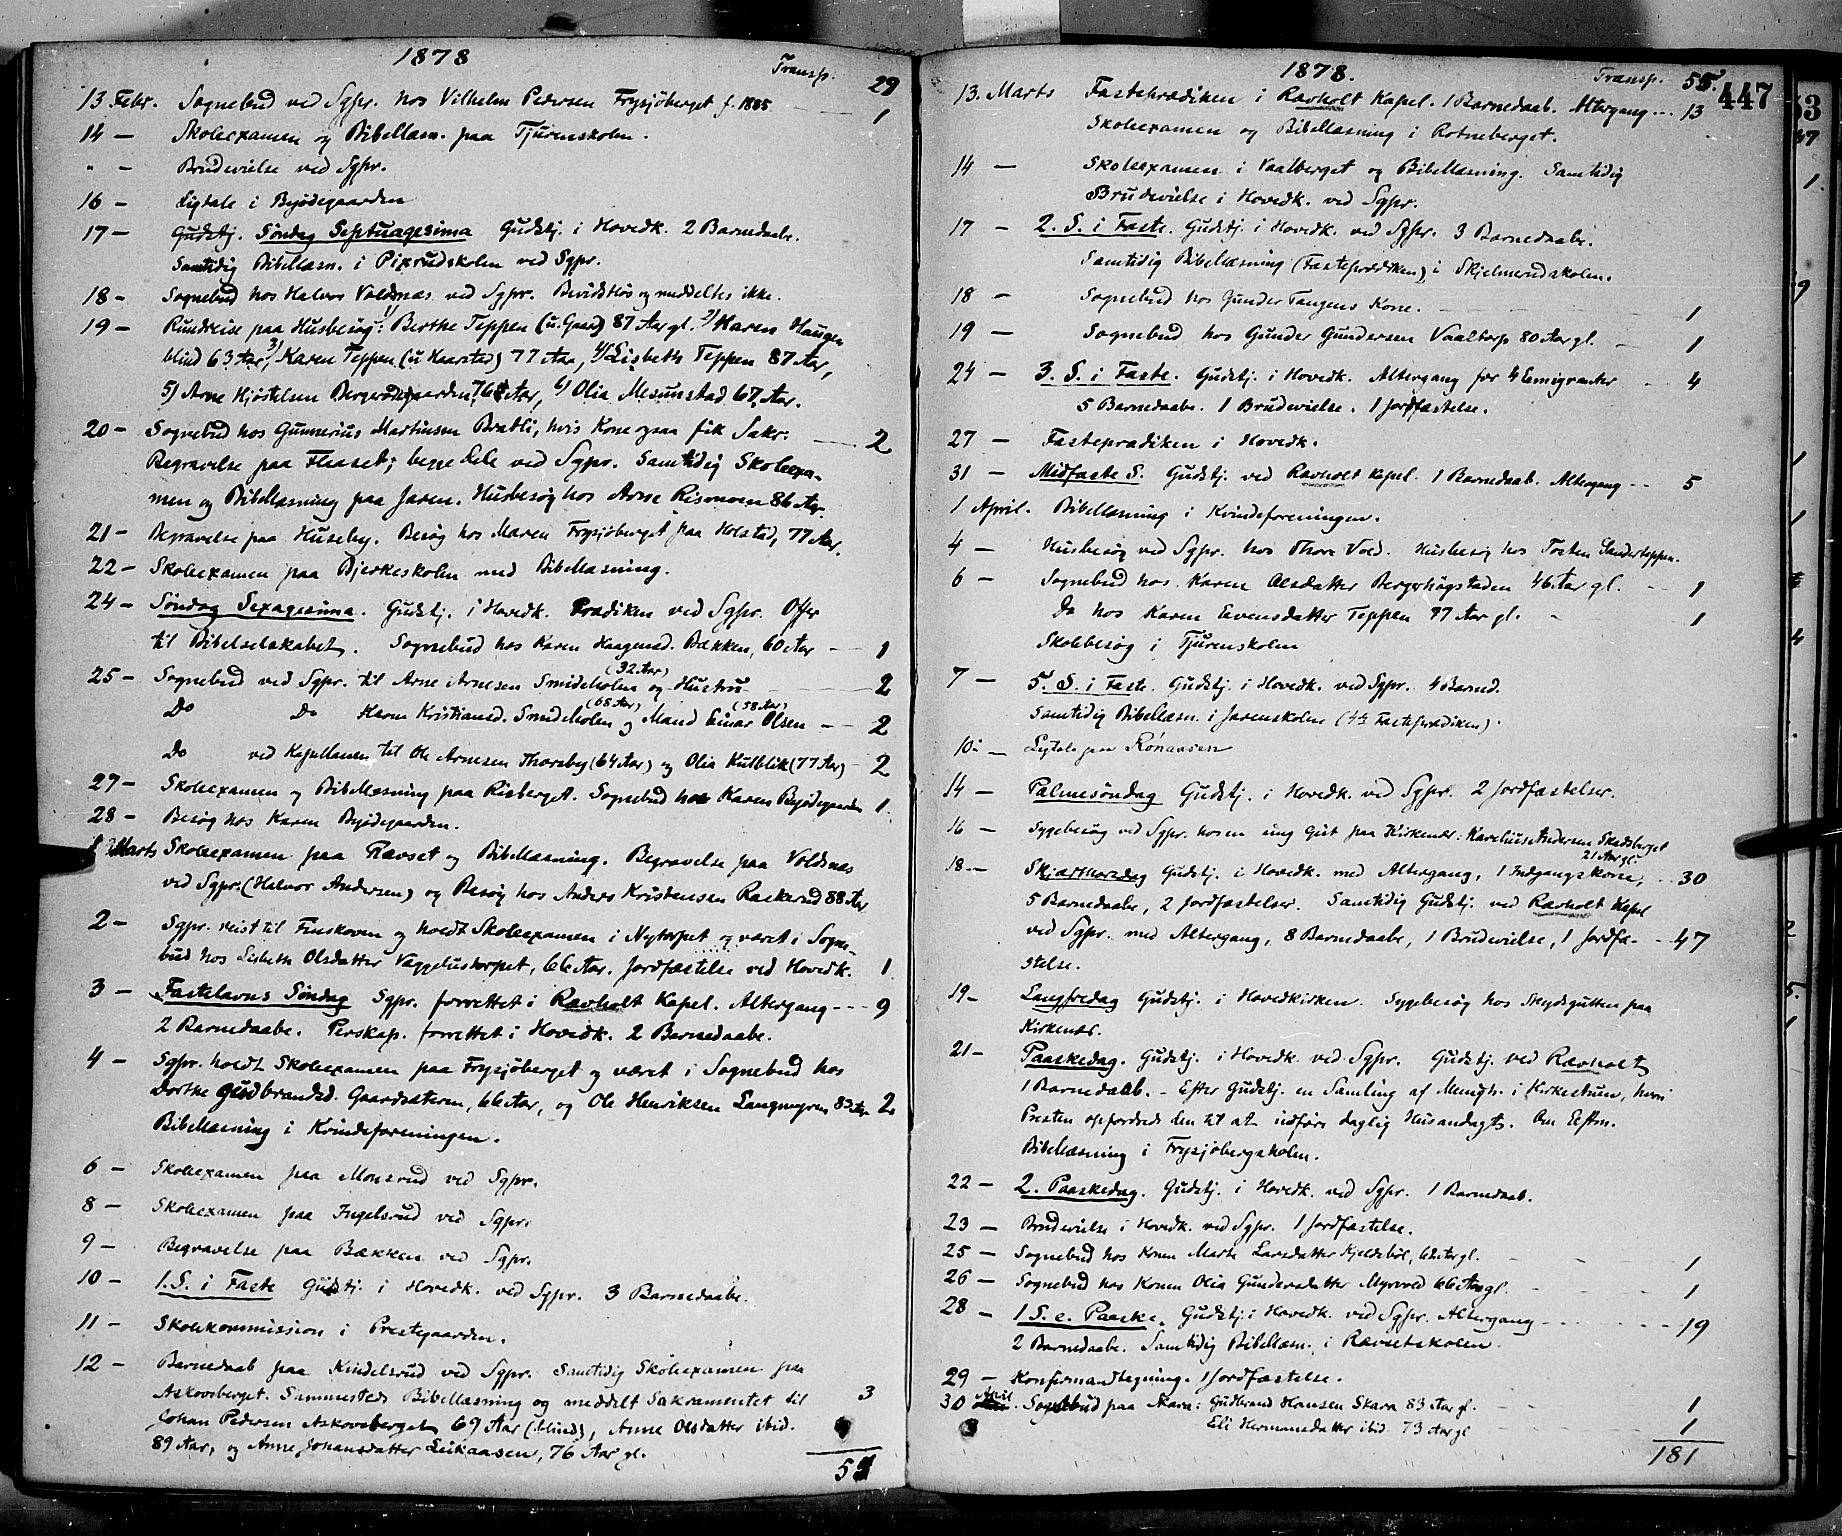 1878
Transp. 29
13 Febr. Sognebud ved Sgpr. hos Vilhelm Pedersen Frysjöberget f. 1885 1
14 — Skoleexamen og Bibellæsn. paa Tjurenskolen.
" — Brudevielse ved Sgpr.
16 — Ligtale i Byödegaarden
17 — Gudstj. Søndag Septuagesima Gudstj. i Hovedk. 2 Barnedaabe.
Samtidig Bibellæsn. i Pixrudskolen ved Sgpr.
18 — Sognebud hos Halvor Voldsnæs ved Sgpr. Bevidstløs og meddeltes ikke.
19 — Rundreise paa Husbesøg: 1) Berthe Teppen (u. Gaard) 87 Aar gl. 2) Karen Haugen
blind 63 Aar, 3) Karen Teppen (u. Haarstad) 77 Aar, 4) Lisbeth Teppen 87 Aar,
5) Arne Kjöstelsen Bergerödegaarden, 76 Aar, 6) Olia Mesunstad 67 Aar.
20 — Sognebud hos Gunnerius Martinsen Bratli, hvis Kone ogsaa fik Sakr. 2
Begravelse paa Flaset; begge Dele ved Sgpr. Samtidig Skoleexa-
men og Bibellæsning paa Jaren. Husbesøg hos Arne Rismoen 86 Aar.
21 — Begravelse paa Huseby. Besøg hos Maren Frysjöberget paa Holstad, 77 Aar.
22 — Skoleexamen paa Bjerkeskolen med Bibellæsning.
24 — Søndag Sexagesima. Gudstj. i Hovedk. Prædiken ved Sgpr. Offer
til Bibelselskabet. Sognebud hos Karen Haagensd. Bækken, 60 Aar — 1
25 — Sognebud ved Sgpr. til Arne Arnesen Smideholen (32 Aar) og Hustru 2
Do Do Karen Kristiansd. Smideholen (68 Aar) og Mand Einar Olsen (58 Aar) — 2
Do ved Kapellanen til Ole Arnesen Thorsby (64 Aar) og Olia Kulblik (77 Aar) — 2
27 — Skoleexamen og Bibellæsning paa Risberget. Sognebud hos Karen Byödegaarden 1.
28 — Besøg hos Karen Byödegaarden.
1 Marts Skoleexamen paa Rævset og Bibellæsning. Begravelse paa Voldsnæs
ved Sgpr. (Halvor Andersen) og Besøg hos Anders Kristensen Raskerud 88 Aar
2 — Sgpr. reist til Finskoven og holdt Skoleexamen i Nytorpet og været i Sogne-
bud hos Lisbeth Olsdatter Vaggelustorpet, 66 Aar. Jordfæstelse ved Hovedk. 1
3 — Fastelavns Søndag Sgpr. forrettet i Ravholt Kapel. Altergang — 9
2 Barnedaabe. Perskap. forrettet i Hovedk. 2 Barnedaabe.
4 — Sgpr. holdt Skoleexamen paa Frysjöberget og været i Sognebud hos
Dorthe Gudbrandsd. Gaardsæteren, 66 Aar, og Ole Henriksen Langmyren 83 Aar 2.
Bibellæsning i Kvindeforeningen.
6 — Skoleexamen paa Monsrud ved Sgpr.
8 — Skoleexamen paa Ingelsrud ved Sgpr.
9 — Begravelse paa Bækken ved Sgpr.
10 — 1. S. i Faste Gudstj. i Hovedk. ved Sgpr. 3 Barnedaabe.
11 — Skolekommission i Prestegaarden.
12 — Barnedaab paa Kindelsrud ved Sgpr. Samtidig Skoleexamen paa
Askovsberget. Sammesteds Bibellæsning og meddelt Sakramentet til 3
Johan Pedersen Askovsberget 69 Aar (blind), Anne Olsdatter ibid.
89 Aar, og Anne Johansdatter Leikaasen, 76 Aar gl.
1878.
Transp. 55.
447
13. Marts Fasteprædiken i Ravholt Kapel. 1 Barnedaab. Altergang — 13
Skoleexamen og Bibellæsning i Rotneberget.
14 — Skoleexamen i Vaalberget og Bibellæsning. Samtidig
Brudevielse i Hovedk. ved Sgpr.
17 — 2. S. i Faste. Gudstj. i Hovedk. ved Sgpr. 3 Barnedaabe.
Samtidig Bibellæsning (Fasteprædiken) i Skjelmerudskolen.
18 — Sognebud hos Gunder Tangens Kone. 1
19 — Sognebud hos Gunder Gundersen Vaaltorp 80 Aar gl. 1
24 — 3. S. i Faste. Gudstj. i Hovedk. Altergang for 4 Emigranter 4
5 Barnedaabe. 1 Brudevielse. 1 Jordfæstelse.
27 — Fasteprædiken i Hovedk.
31 — Midfaste S. Gudstj. ved Ravholt Kapel. 1 Barnedaab. Altergang — 5
1 April. Bibellæsning i Kvindeforeningen.
4 — Husbesøg ved Sgpr. hos Thore Vold. Husbesøg hos Tosten Sanderteppen.
6 — Sognebud hos Karen Olsdatter Bergerhögstaden 46 Aar gl. 1
Do hos Karen Evensdatter Teppen 77 Aar gl. 1
Skolebesøg i Tjurenskolen
7 — 5. S. i Faste. Gudstj. i Hovedk. ved Sgpr. 4 Barned.
Samtidig Bibellæsn. i Jarenskolen (4de Fasteprædiken).
10 — Ligtale paa Rönaasen
14 — Palmesöndag Gudstj. i Hovedk. ved Sgpr. 2 Jordfæstelser.
16 — Sygebesøg ved Sgpr. hos en ung Gut paa Kirkenær: Karelius Andersen Skadsberget
21 Aar gl.
18 — Skjærthorsdag Gudstj. i Hovedk. med Altergang, 1 Indgangskone, 30
5 Barnedaabe, 2 Jordfæstelser. Samtidig Gudstj. ved Ravholt Kapel
ved Sgpr. med Altergang, 8 Barnedaabe, 1 Brudevielse, 1 Jordfæ- 47
stelse.
19 — Langfredag Gudstj. i Hovedkirken. Sygebesøg hos Skydsgutten paa
Kirkenær.
21 — Paaskedag. Gudstj. i Hovedk. ved Sgpr. Gudstj. ved Ravholt
1 Barnedaab. — Efter Gudstj. en Samling af Mengh. i Kirkestuen, hvori
Presten opfordred den til at udføre daglig Husandagt. Om Eftm.
Bibellæsning i Frysjöbergskolen.
22 — 2. Paaskedag. Gudstj. i Hovedk. ved Sgpr. 1 Barnedaab.
23 — Brudevielse i Hovedk. ved Sgpr. 1 Jordfæstelse.
25 — Sognebud hos Konen Marte Larsdatter Kjeldsböl, 62 Aar gl. 1
26 — Sognebud hos Konen Olia Gundersdatter Myrvold 66 Aar gl. 1
28 — 1 S. e. Paaske. Gudstj. i Hovedk. ved Sgpr. Altergang 19
2 Barnedaabe. Samtidig Bibellæsn. i Rævsetskolen.
29 — Konfirmandtegning. 1 Jordfæstelse.
30 April. Sognebud paa Skara: Gudbrand Hansen Skara 83 Aar gl. 1
Eli Hermansdatter ibid. 73 Aar gl 1
181